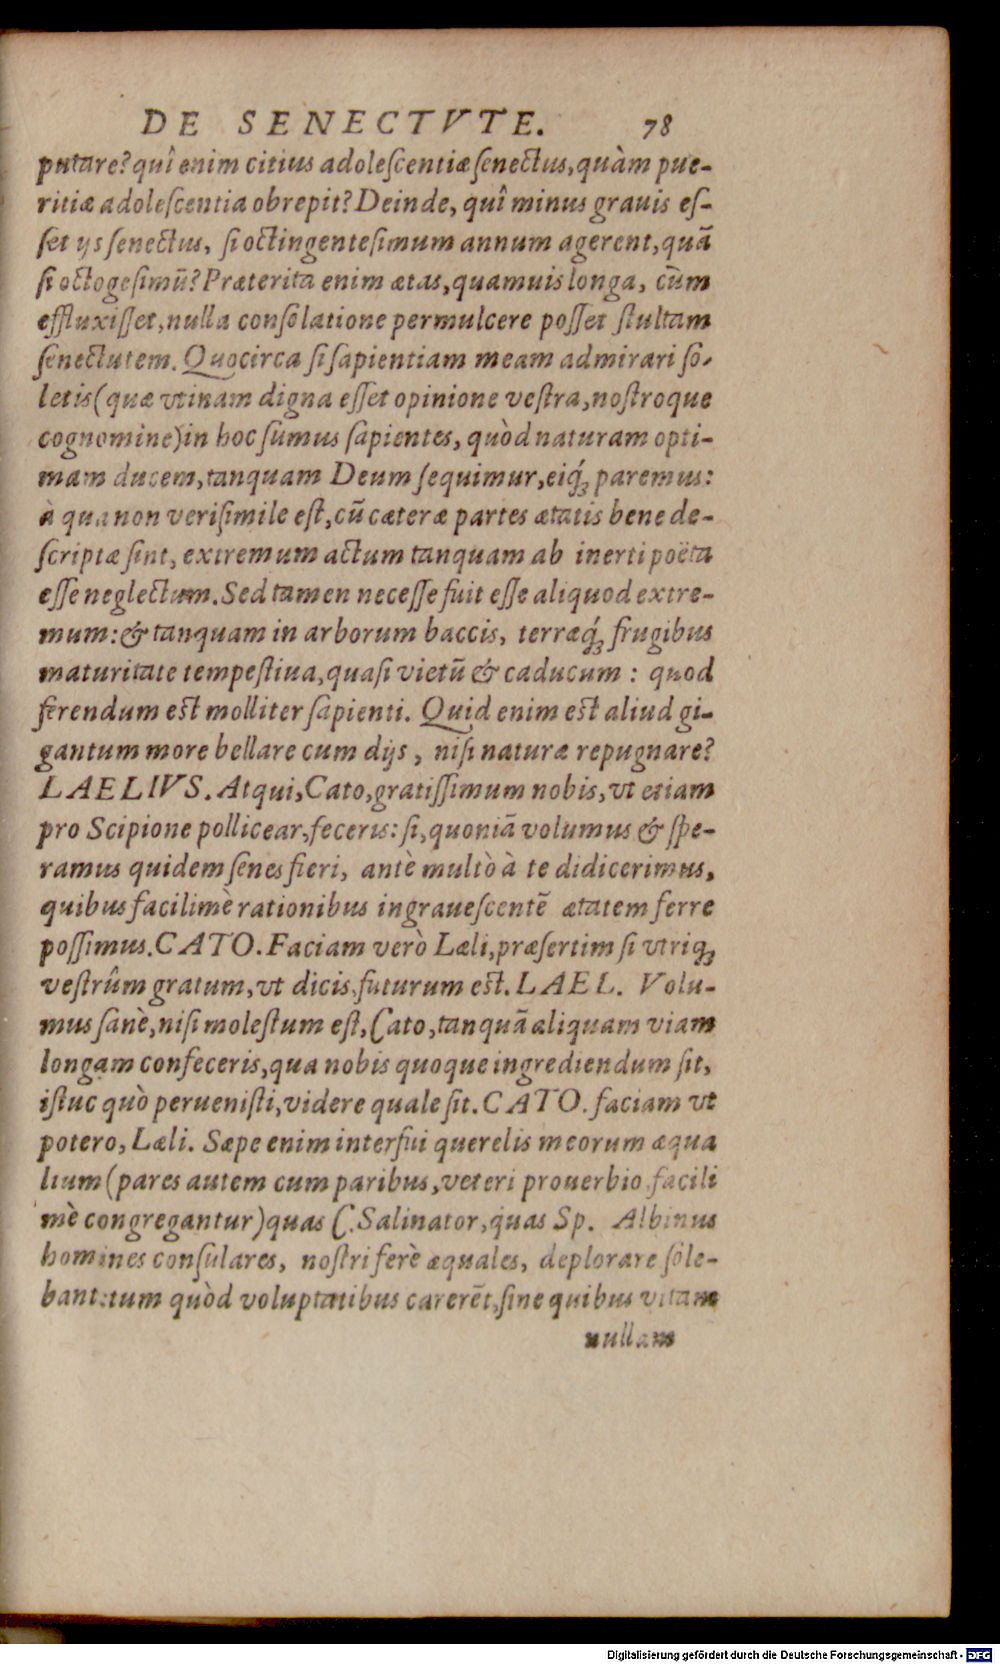 DE SENECTVTE. 78
putare? quî enim citius adoleſcentiæ ſenectus, quàm pue-
ritiæ adoleſcentia obrepit? Deinde, quî minus grauis eſ-
ſet ijs ſenectus, ſi octingenteſimum annum agerent, quã
ſi octogeſimũ? Præterita enim ætas, quamuis longa, cùm
effluxiſſet, nulla conſolatione permulcere poſſet ſtultam
ſenectutem. Quocirca ſi ſapientiam meam admirari ſo-
letis (quæ vtinam digna eſſet opinione veſtra, noſtroque
cognomine) in hoc ſumus ſapientes, quòd naturam opti-
mam ducem, tanquam Deum ſequimur, eiq́ꝫ paremus:
à qua non veriſimile eſt, cũ cæteræ partes ætatis bene de-
ſcriptæ ſint, extremum actum tanquam ab inerti poëta
eſſe neglectum. Sed tamen neceſſe fuit eſſe aliquod extre-
mum: & tanquam in arborum baccis, terræq́ꝫ frugibus
maturitate tempeſtiua, quaſi vietũ & caducum : quod
ferendum eſt molliter ſapienti. Quid enim eſt aliud gi-
gantum more bellare cum dijs, niſi naturæ repugnare?
LAELIVS. Atqui, Cato, gratiſſimum nobis, vt etiam
pro Scipione pollicear, feceris: ſi, quoniã volumus & ſpe-
ramus quidem ſenes fieri, antè multò à te didicerimus,
quibus facilimè rationibus ingraueſcentẽ ætatem ferre
poſſimus. CATO. Faciam verò Læli, præſertim ſi vtriqꝫ
veſtrûm gratum, vt dicis, futurum eſt. LAEL. Volu-
mus ſanè, niſi moleſtum eſt, Cato, tanquã aliquam viam
longam confeceris, qua nobis quoque ingrediendum ſit,
iſtuc quò perueniſti, videre quale ſit. CATO. faciam vt
potero, Læli. Sæpe enim interfui querelis meorum æqua
lium (pares autem cum paribus, veteri prouerbio facili
mè congregantur) quas C. Salinator, quas Sp. Albinus
homines conſulares, noſtri ferè æquales, deplorare ſole-
bant: tum quòd voluptatibus carerẽt, ſine quibus vitam
nullam
Digitalisierung gefördert durch die Deutsche Forschungsgemeinschaft - DFG